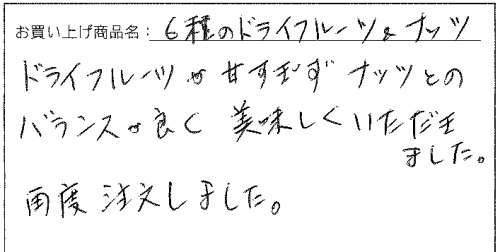 お買い上げ商品名：6種のドライフルーツ&ナッツ
ドライフルーツが甘すぎず ナッツとの
バランスが良く 美味しくいただき
ました。
再度 注文しました。